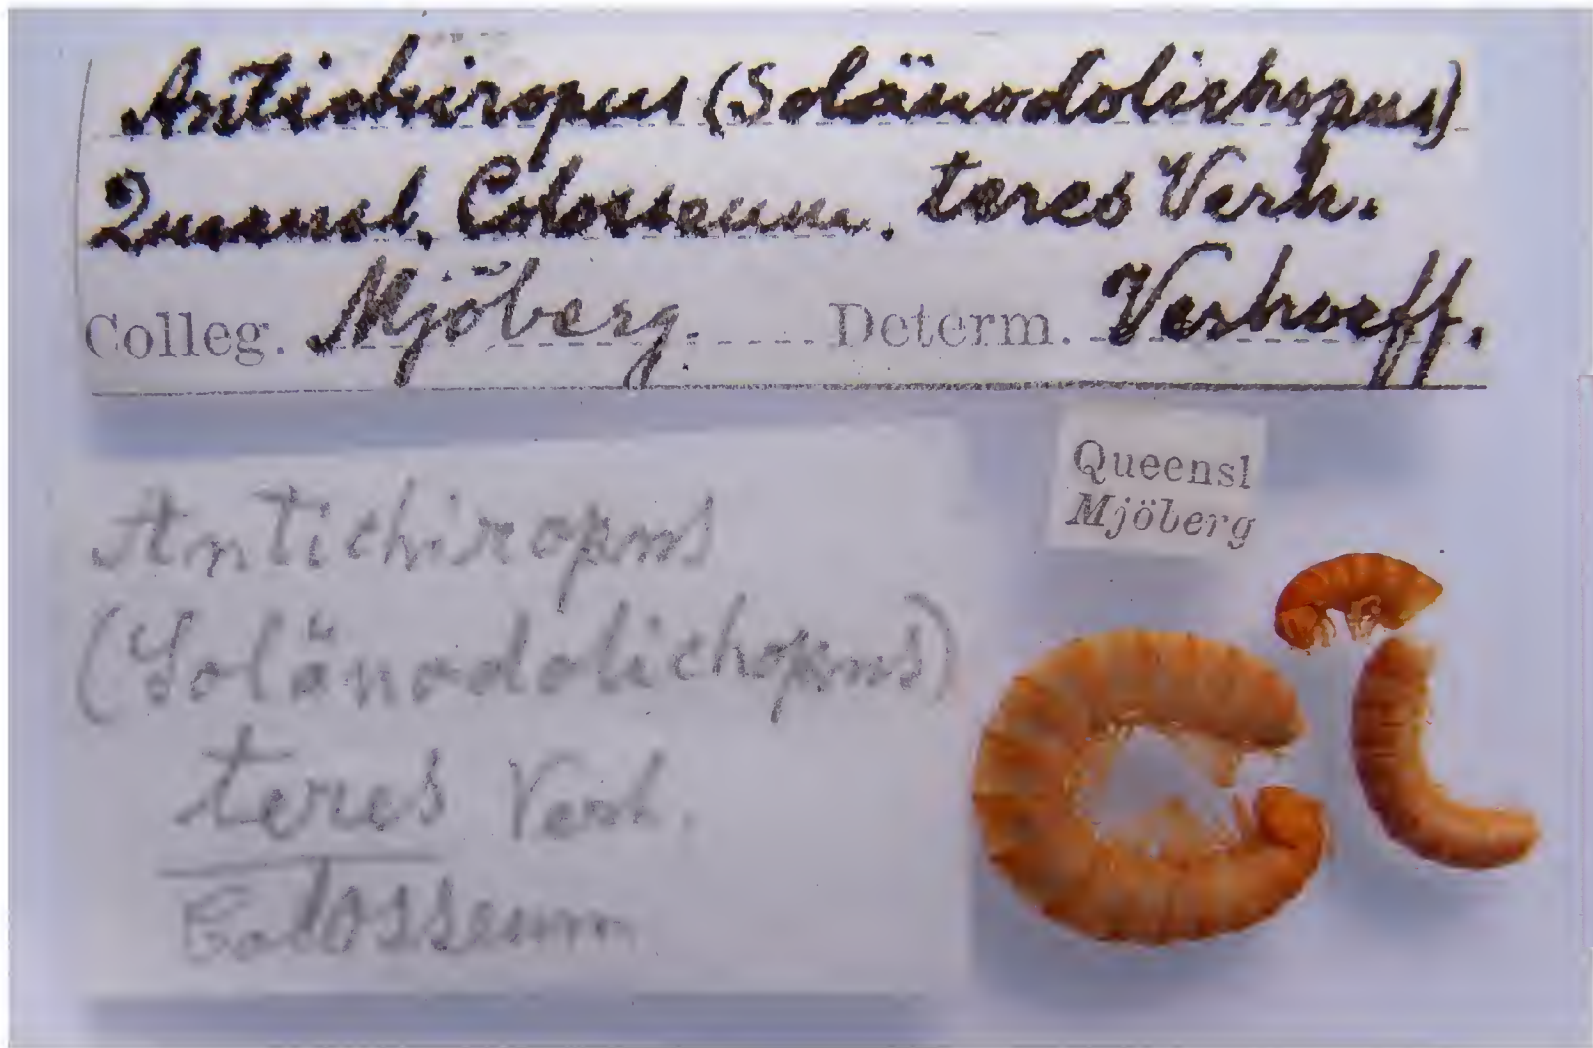 Antichiropus (Solänodolichopus)
Queensl. Colosseum. teres Verh.
Colleg. Mjöberg. Determ. Verhoeff.
Queensl
Mjöberg
Antichiropus
(Solänodolichopus)
teres Verh.
Colosseum